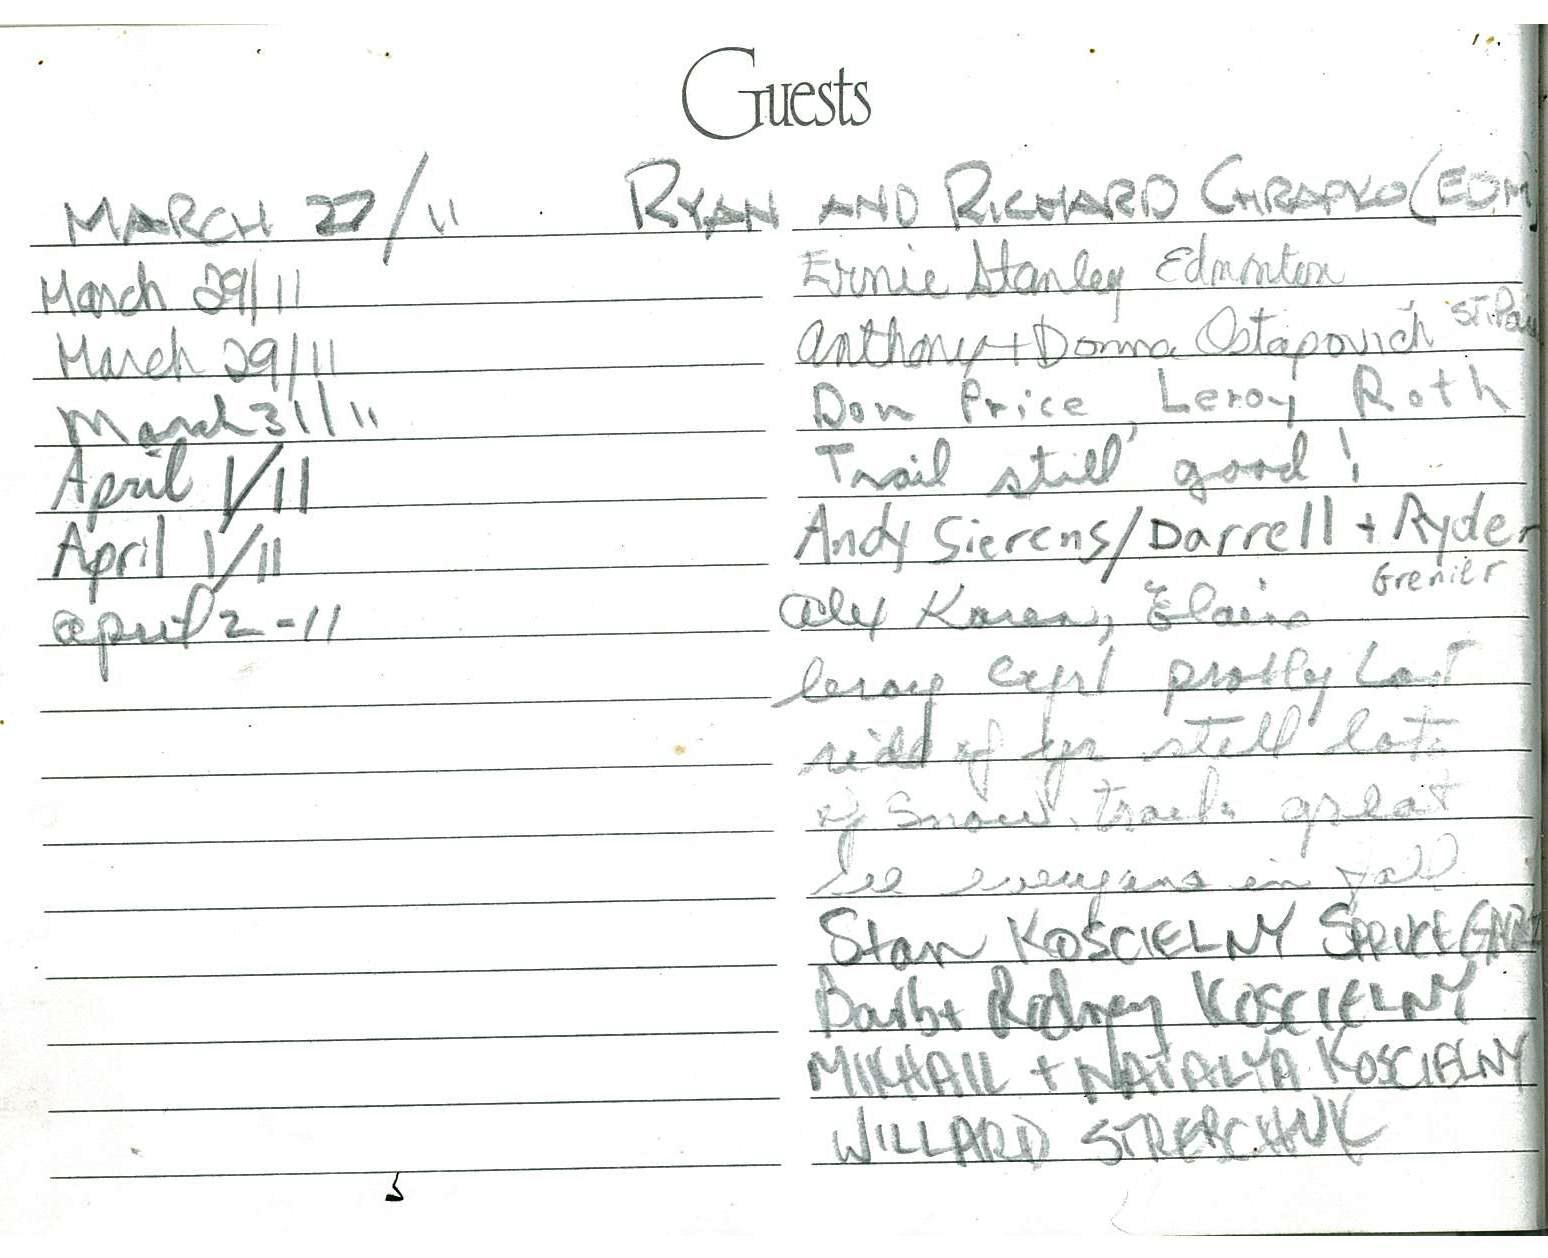 Guests
MARCH 27/11 RYAN AND RICHARD CHRAPKO (EDM)
March 29/11 Ernie Stanley Edmonton
March 29/11 Anthony + Donna Ostapovich St. Pau
March 31/11 Don Price, Leroy Roth
April 1/11 Trail still good!
April 1/11 Andy Sierens/Darrell + Ryder
Grenier
april 2-11 alex Karen, Elaine
leroy Cyrl probly Last
ride of yr still lots
of snow. trails great
see everyone in fall
Stan KOSCIELNY SPRUCE
Barb + Rodney KOSCIELNY
MIKHAIL + NATALYA KOSCIELNY
WILLARD